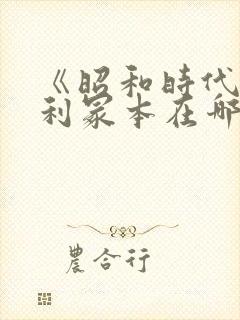 《昭和時代
利冢本在哪
農合行